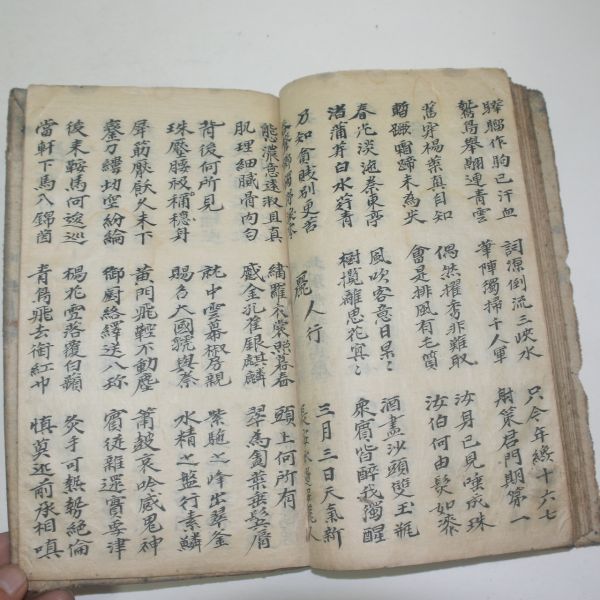 驊騮作駒已汗血
鷙鳥舉翮連青雲
詞源倒流三峽水
筆陣獨掃千人軍
只今年纔十六七
射策君門期第一
舊穿楊葉真自知
暫蹶霜蹄未為失
偶然擢秀非難取
會是排風有毛質
汝身已見唾成珠
汝伯何由髮如漆
春光淡沲秦東亭
渚蒲芽白水荇青
風吹客意日杲〻
樹攪離思花冥〻
酒盡沙頭雙玉瓶
衆賓皆醉我獨醒
乃知貧賤別更苦
麗人行
三月三日天氣新
長安水邊多麗人
態濃意遠淑且真
肌理細膩骨肉勻
繡羅衣裳照暮春
蹙金孔雀銀麒麟
頭上何所有
翠為匎葉垂鬂唇
背後何所見
珠壓腰衱穩稱身
就中雲幕椒房親
賜名大國虢與秦
紫駞之峰出翠釜
水精之盤行素鱗
犀筯厭飫久未下
鸞刀縷切空紛綸
黃門飛鞚不動塵
御厨絡繹送八珎
簫鼓哀吟感鬼神
賓從雜遝實要津
後來鞍馬何逡巡
當軒下馬入錦茵
楊花雪落覆白蘋
青鳥飛去銜紅巾
炙手可熱勢絶倫
慎莫近前丞相嗔